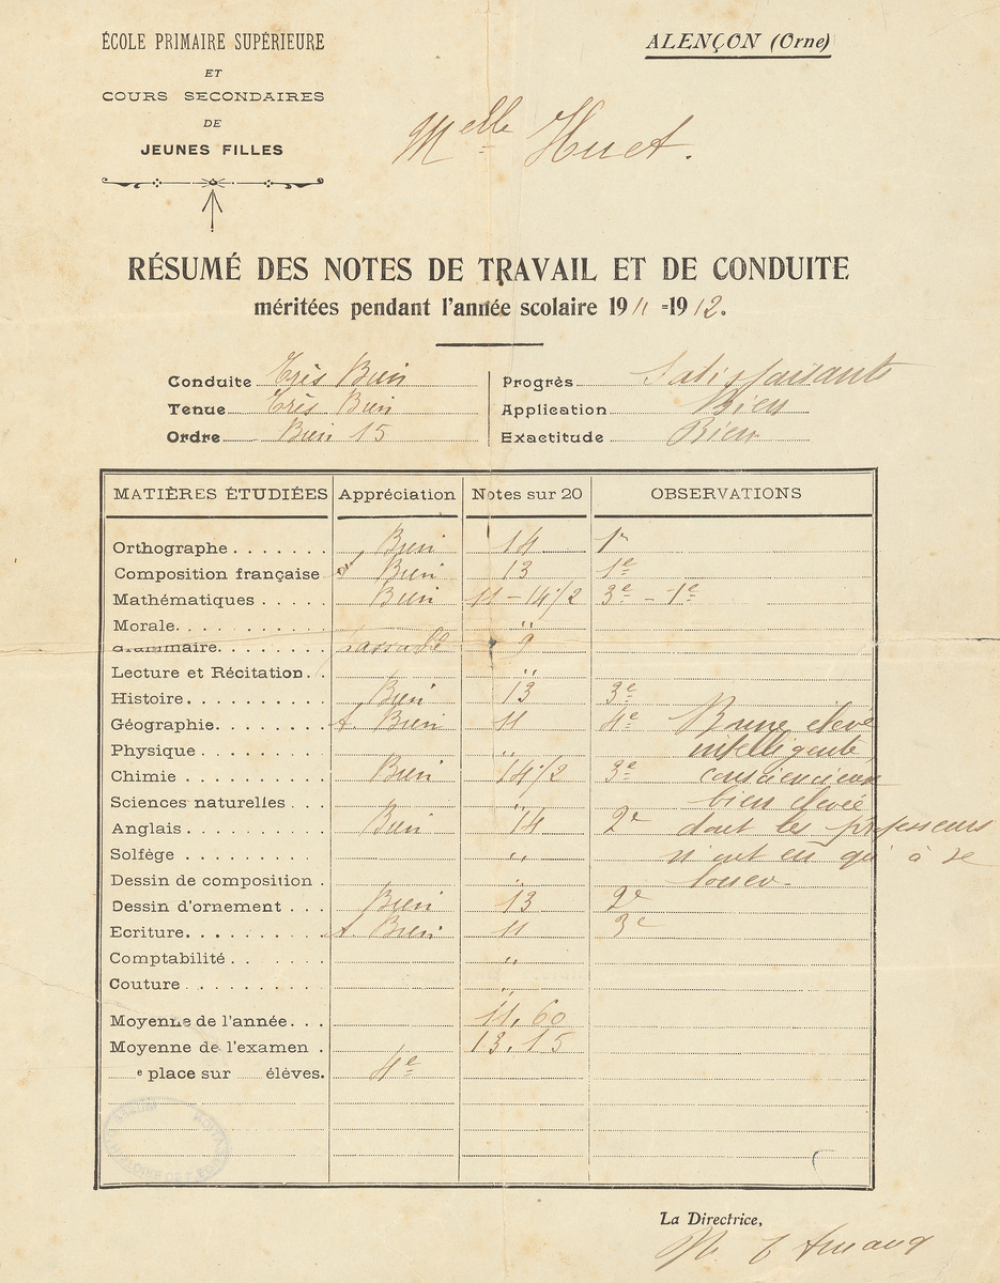 ÉCOLE PRIMAIRE SUPÉRIEURE
ET
COURS SECONDAIRES
DE
JEUNES FILLES
ALENÇON (Orne)
Melle Huet.
RÉSUMÉ DES NOTES DE TRAVAIL ET DE CONDUITE
méritées pendant l'année scolaire 1911-1912.
Conduite Très Bien
Tenue Très Bien
Ordre Bien 15
Progrès Satisfaisants
Application Bien
Exactitude Bien
MATIÈRES ÉTUDIÉES Appréciation Notes sur 20 OBSERVATIONS
Orthographe....... Bien 14 1r
Composition française Bien 13 1e
Mathématiques..... Bien 11 - 14 1/2 3e - 1e
Morale.......... "
Grammaire....... Passable 9
Lecture et Récitation.. "
Histoire......... Bien 13 3e
Géographie....... A. Bien 11 4e Bonne élève
Physique........ " intelligente
Chimie.......... Bien 14 1/2 3e consciencieuse
Sciences naturelles... " bien élevée
Anglais......... Bien 14 2e dont les professeurs
Solfège......... " n'ont eu qu'à se
Dessin de composition. " louer.
Dessin d'ornement... Bien 13 2e
Ecriture......... A. Bien 11 3e
Comptabilité...... "
Couture......... "
Moyenne de l'année... 11,60
Moyenne de l'examen. 13.15
e place sur élèves. 4e
La Directrice,